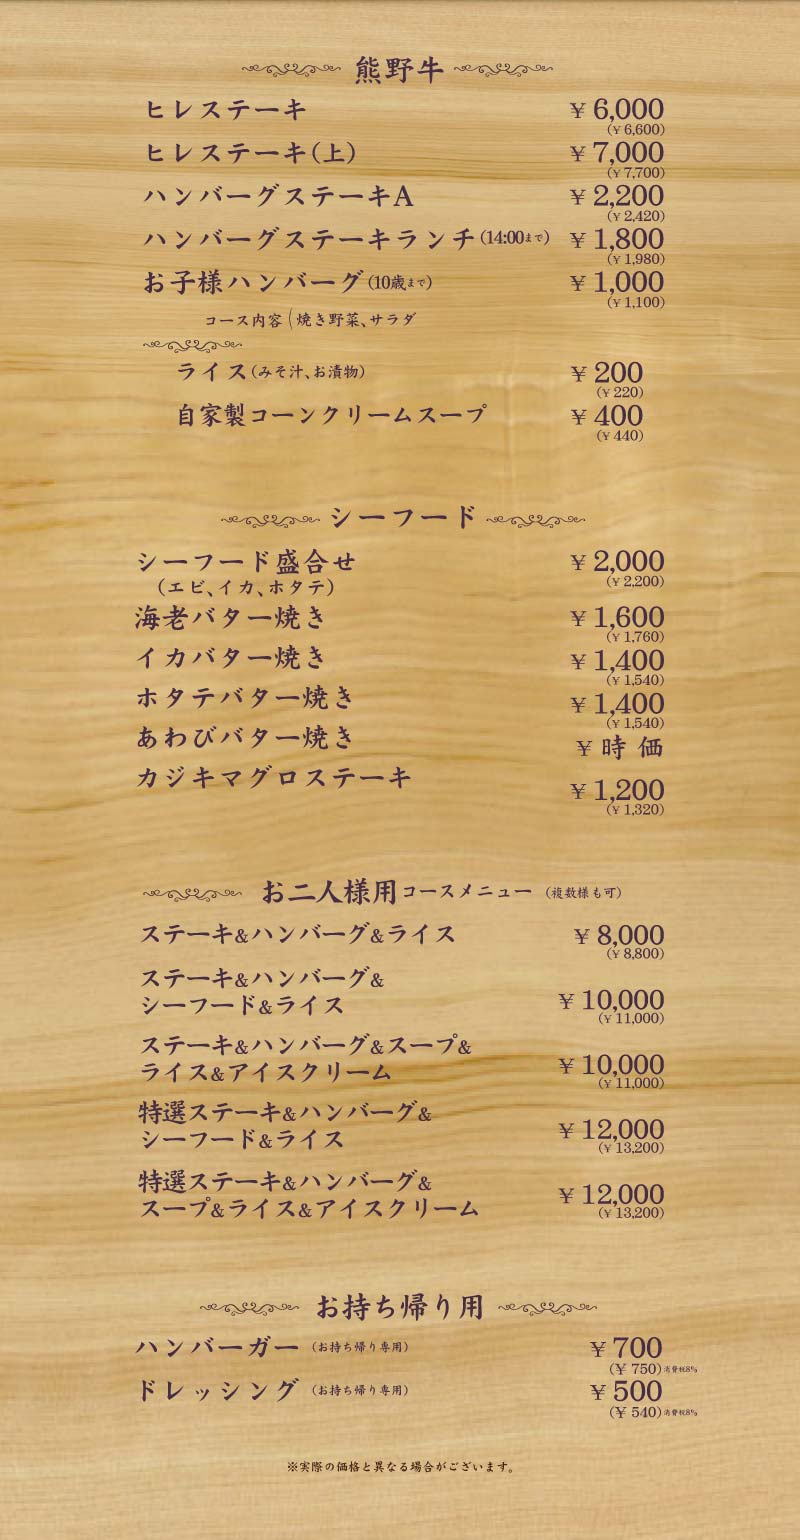 熊野牛
ヒレステーキ ¥6,000
(¥6,600)
ヒレステーキ(上) ¥7,000
(¥7,700)
ハンバーグステーキA ¥2,200
(¥2,420)
ハンバーグステーキランチ(14:00まで) ¥1,800
(¥1,980)
お子様ハンバーグ(10歳まで) ¥1,000
(¥1,100)
コース内容(焼き野菜、サラダ
ライス(みそ汁、お漬物) ¥200
(¥220)
自家製コーンクリームスープ ¥400
(¥440)
シーフード
シーフード盛合せ ¥2,000
(エビ、イカ、ホタテ) (¥2,200)
海老バター焼き ¥1,600
(¥1,760)
イカバター焼き ¥1,400
(¥1,540)
ホタテバター焼き ¥1,400
(¥1,540)
あわびバター焼き ¥時価
カジキマグロステーキ ¥1,200
(¥1,320)
お二人様用コースメニュー(複数様も可)
ステーキ&ハンバーグ&ライス ¥8,000
(¥8,800)
ステーキ&ハンバーグ&
シーフード&ライス ¥10,000
(¥11,000)
ステーキ&ハンバーグ&スープ&
ライス&アイスクリーム ¥10,000
(¥11,000)
特選ステーキ&ハンバーグ&
シーフード&ライス ¥12,000
(¥13,200)
特選ステーキ&ハンバーグ&
スープ&ライス&アイスクリーム ¥12,000
(¥13,200)
お持ち帰り用
ハンバーガー(お持ち帰り専用) ¥700
(¥750)消費税8%
ドレッシング(お持ち帰り専用) ¥500
(¥540)消費税8%
※実際の価格と異なる場合がございます。